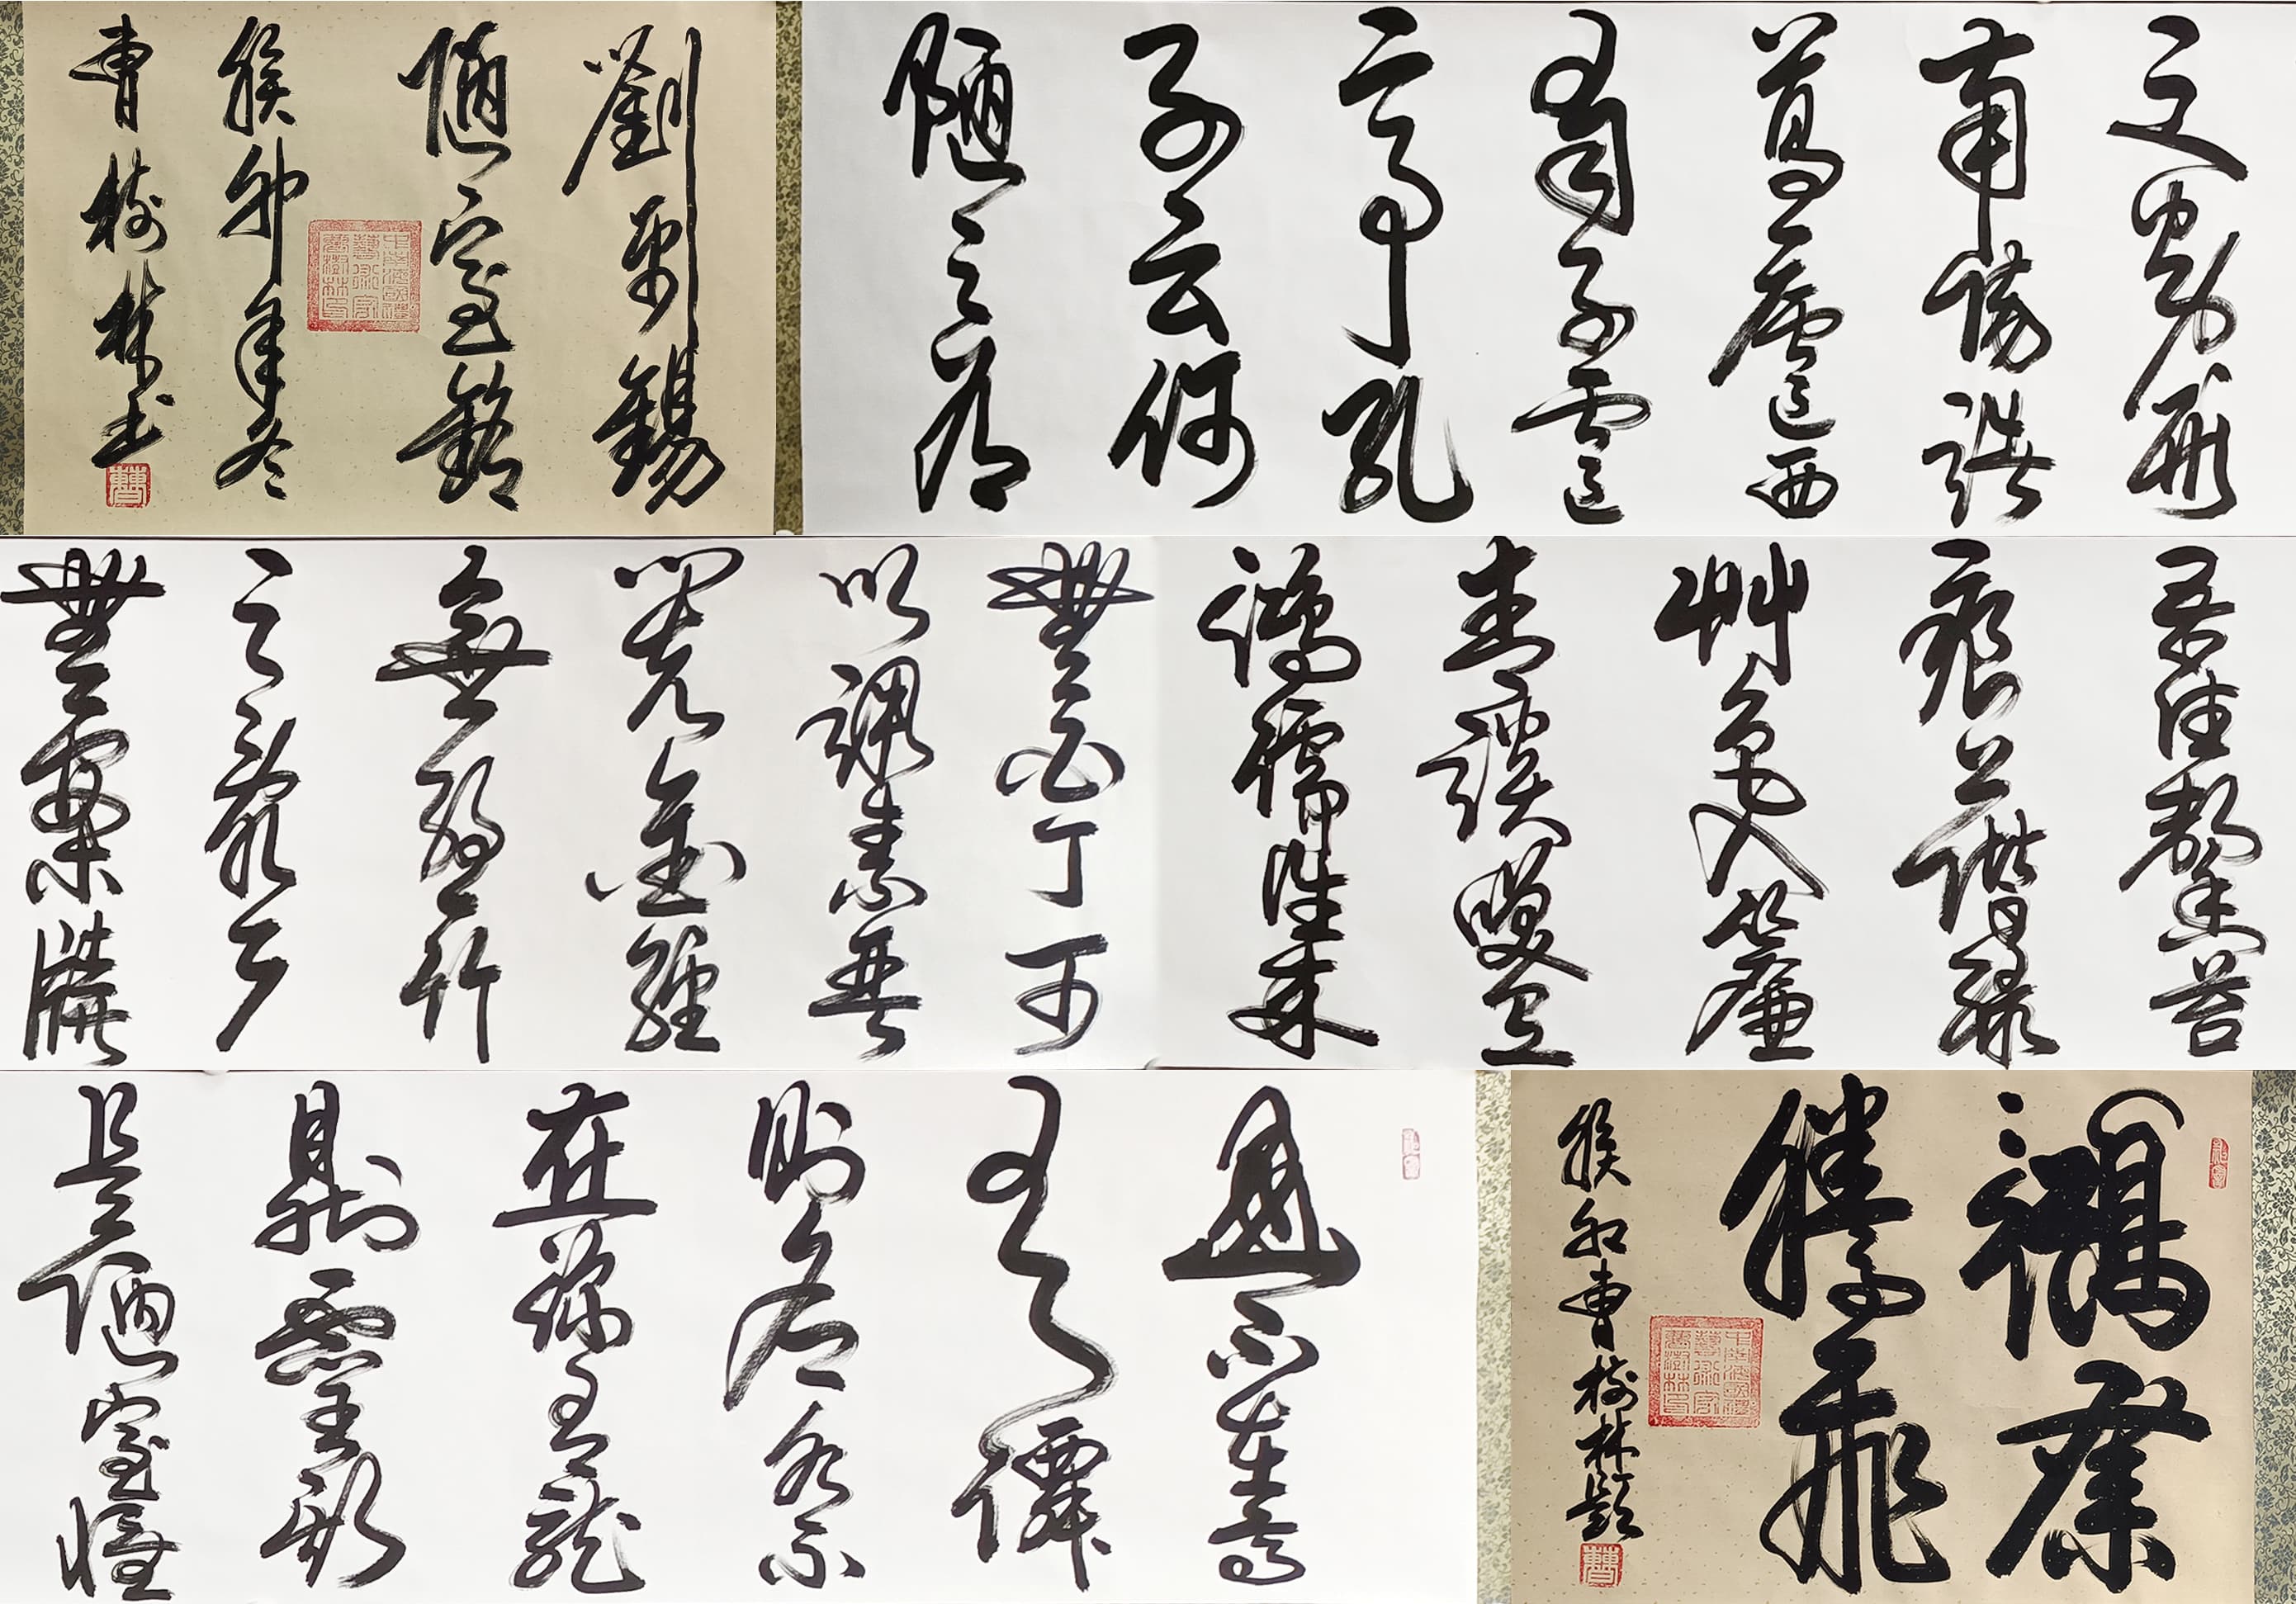 騰飛
癸卯曹樹林題
山不在高
有僊
則名水不
在深有龍
則靈斯
是陋室惟
吾德馨苔
痕上階綠
艸色入簾
青談笑有
鴻儒往來
無白丁可
以調素琴
閱金經
無絲竹
之亂耳
無案牘
之勞形
南陽諸
葛廬西
蜀子雲
亭孔
子云何
陋之有
劉禹錫
陋室銘
癸卯年冬
曹樹林書